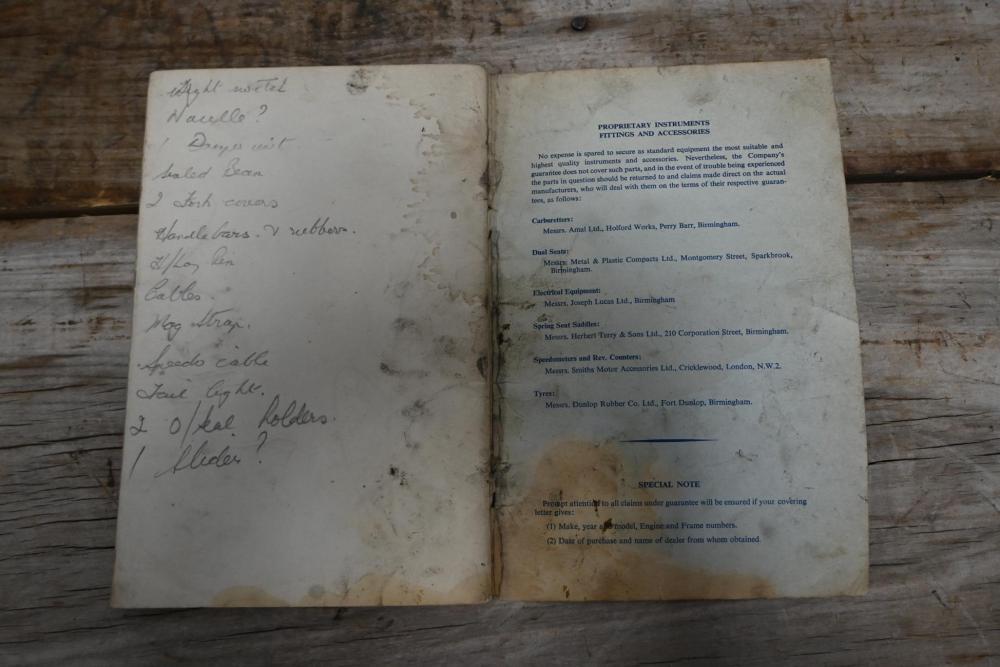 Light switch
Nacelle?
1 Damper unit
Sealed Beam
2 Fork covers
Handlebars. & rubbers.
Cables.
Mag Strap.
Speedo cable
Tail light.
2 O/seal holders.
1 Slider?
PROPRIETARY INSTRUMENTS
FITTINGS AND ACCESSORIES
No expense is spared to secure as standard equipment the most suitable and
highest quality instruments and accessories. Nevertheless, the Company's
guarantee does not cover such parts, and in the event of trouble being experienced
the parts in question should be returned to and claims made direct on the actual
manufacturers, who will deal with them on the terms of their respective guaran-
tees, as follows:
Carburetters:
Messrs. Amal Ltd., Holford Works, Perry Barr, Birmingham.
Dual Seats:
Messrs. Metal & Plastic Compacts Ltd., Montgomery Street, Sparkbrook,
Birmingham.
Electrical Equipment:
Messrs. Joseph Lucas Ltd., Birmingham
Spring Seat Saddles:
Messrs. Herbert Terry & Sons Ltd., 210 Corporation Street, Birmingham.
Speedometers and Rev. Counters:
Messrs. Smiths Motor Accessories Ltd., Cricklewood, London, N.W.2.
Tyres:
Messrs. Dunlop Rubber Co. Ltd., Fort Dunlop, Birmingham.
SPECIAL NOTE
Prompt attention to all claims under guarantee will be ensured if your covering
letter gives:
(1) Make, year and model, Engine and Frame numbers.
(2) Date of purchase and name of dealer from whom obtained.